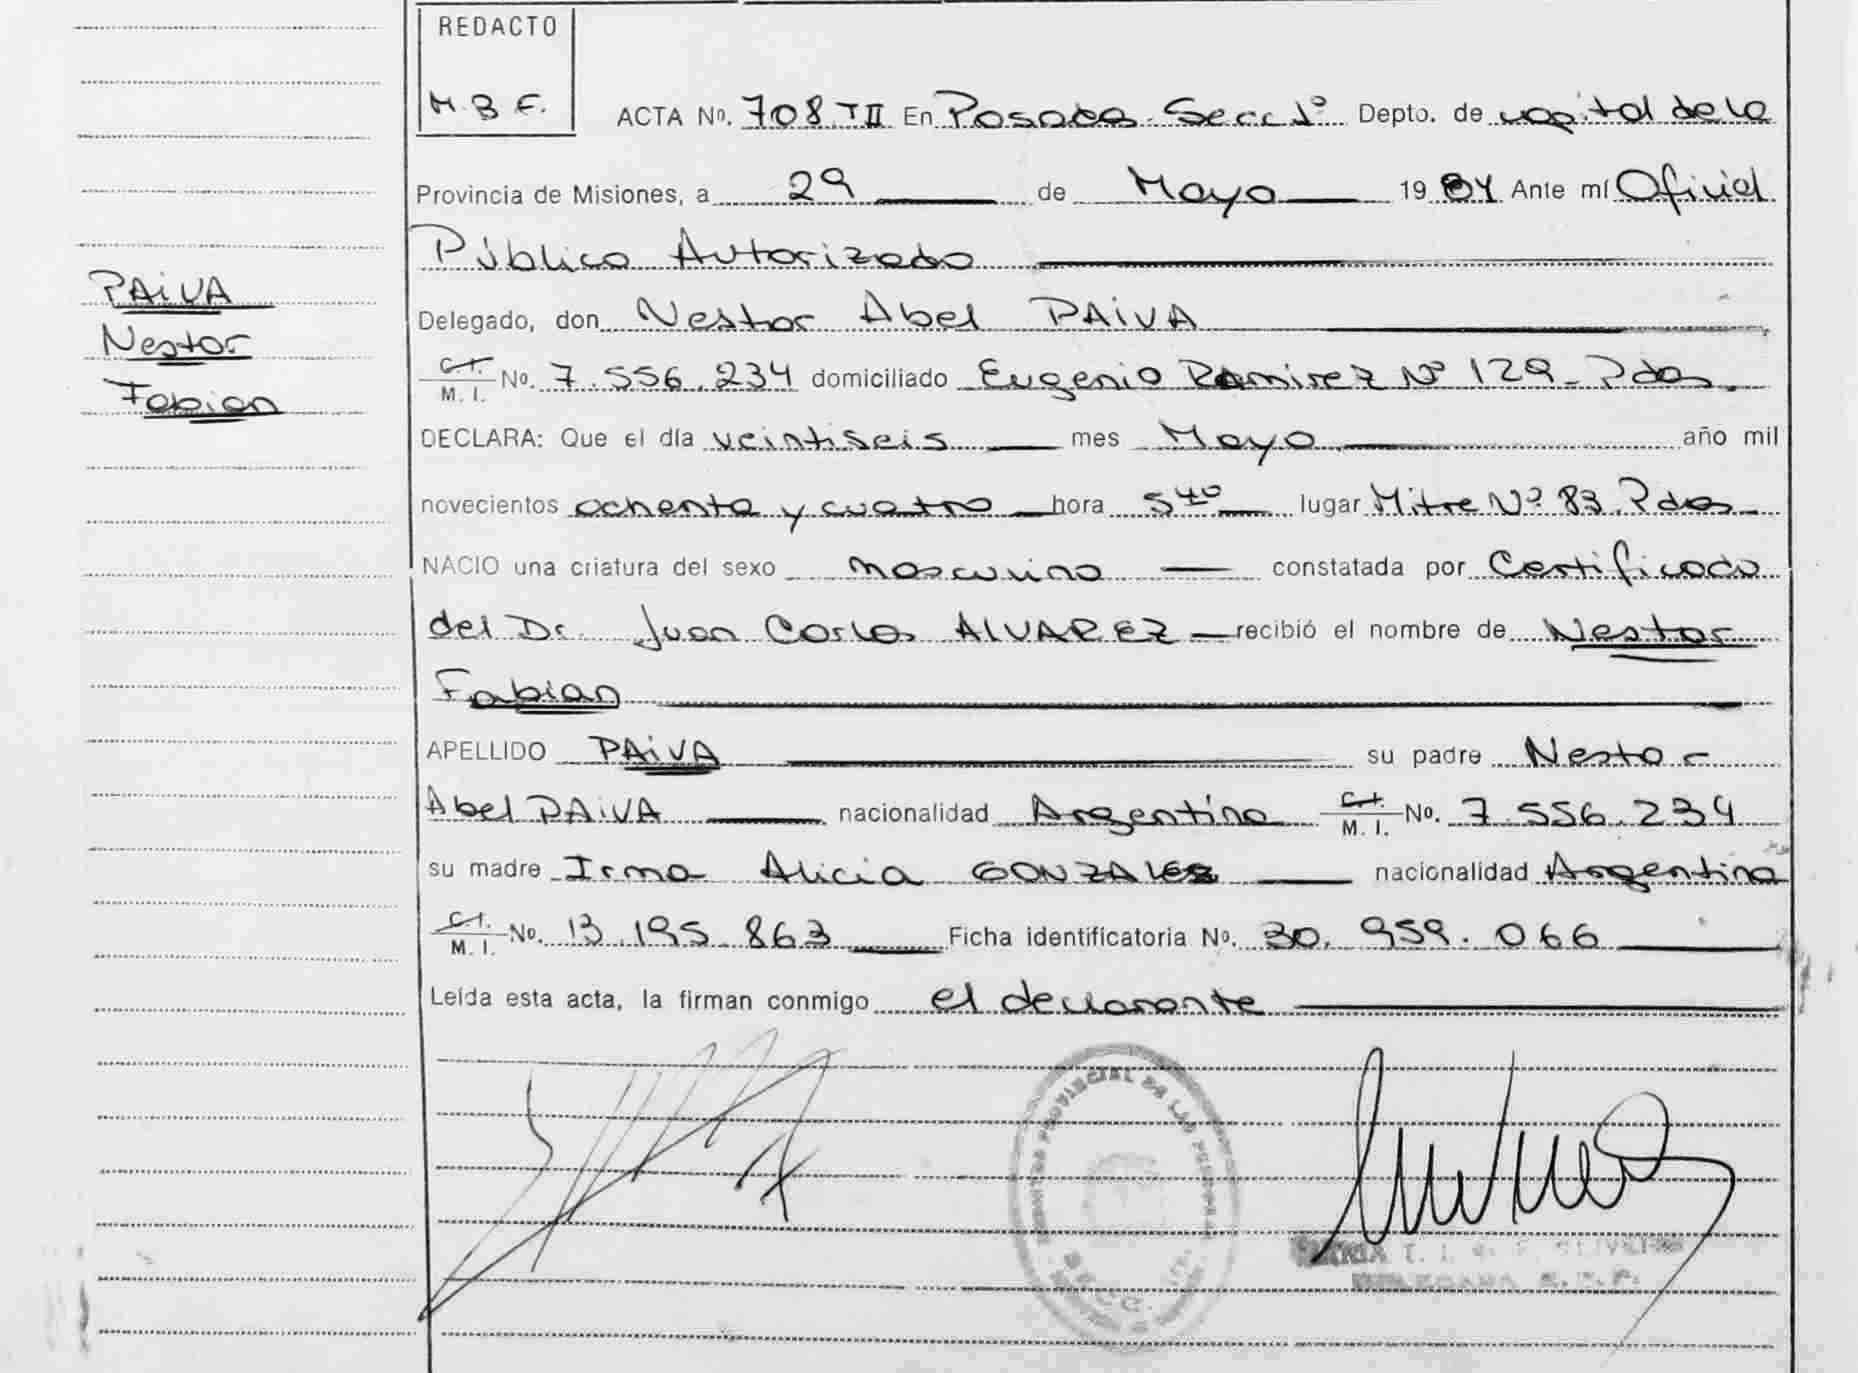 REDACTO
M. B. F.
ACTA Nº. 708 TII En Posadas Secc 1º Depto. de capital de la
Provincia de Misiones, a 29 de Mayo 19 84 Ante mí Oficial
Público Autorizado
Delegado, don Nestor Abel PAiVA
C.I. / M. I. Nº. 7.556.234 domiciliado Eugenio Ramirez Nº 129 - Pdas.
DECLARA: Que el día veintiseis mes Mayo año mil
novecientos ochenta y cuatro hora 5 40 lugar Mitre Nº 83. Pdas
NACIO una criatura del sexo masculino constatada por Certificado
del Dr. Juan Carlos ALVAREZ recibió el nombre de Nestor
Fabian
APELLIDO PAiVA su padre Nestor
Abel PAiVA nacionalidad Argentina C.I. / M. I. Nº. 7.556.234
su madre Irma Alicia GONZALEZ nacionalidad Argentina
C.I. / M. I. Nº. 13.195.863 Ficha identificatoria Nº. 30.959.066
Leída esta acta, la firman conmigo el declarante
PAiVA
Nestor
Fabian
PROVINCIAL DE LAS PERSONAS